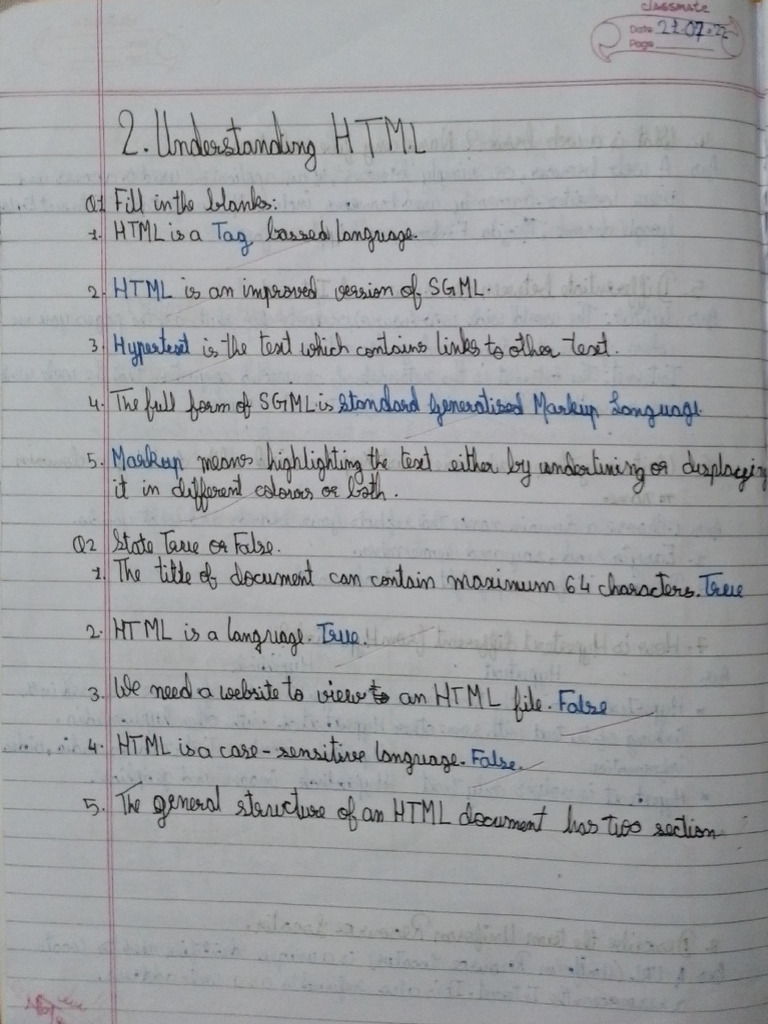 classmate
Date 21.07.22
Page
2. Understanding HTML
Q1 Fill in the blanks:
1. HTML is a Tag bassed language.
2. HTML is an improved version of SGML.
3. Hypertext is the text which contains links to other text.
4. The full form of SGML is Standard Generatised Markup Language.
5. Markup means highlighting the text either by underlining or displaying
it in different colours or both.
Q2 State True or False.
1. The title of document can contain maximum 64 characters. True
2. HTML is a language. True.
3. We need a website to view an HTML file. False
4. HTML is a case-sensitive language. False.
5. The general structure of an HTML document has two section